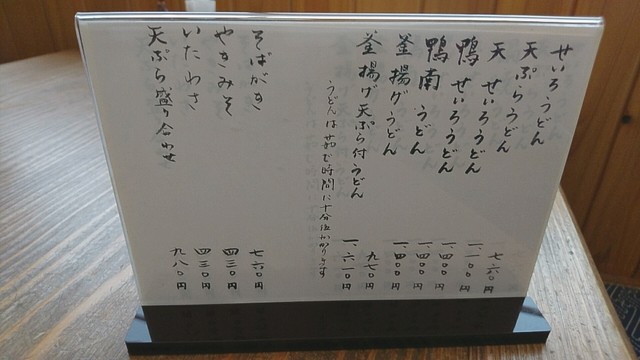 せいろうどん 七六〇円
天ぷらうどん 一、一〇〇円
天せいろうどん 一、四〇〇円
鴨せいろうどん 一、四〇〇円
鴨南うどん 一、四〇〇円
釜揚げうどん 九七〇円
釜揚げ天ぷら付うどん 一、六一〇円
うどんは茹で時間に十分位かかります
そばがき 七六〇円
やきみそ 四三〇円
いたわさ 四三〇円
天ぷら盛り合わせ 九八〇円